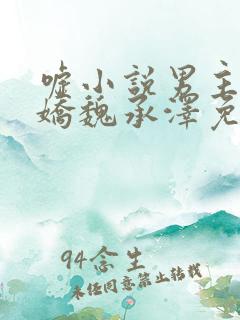 嘘小说男主
嬌魏承澤免
94念生
未经同意禁止转载